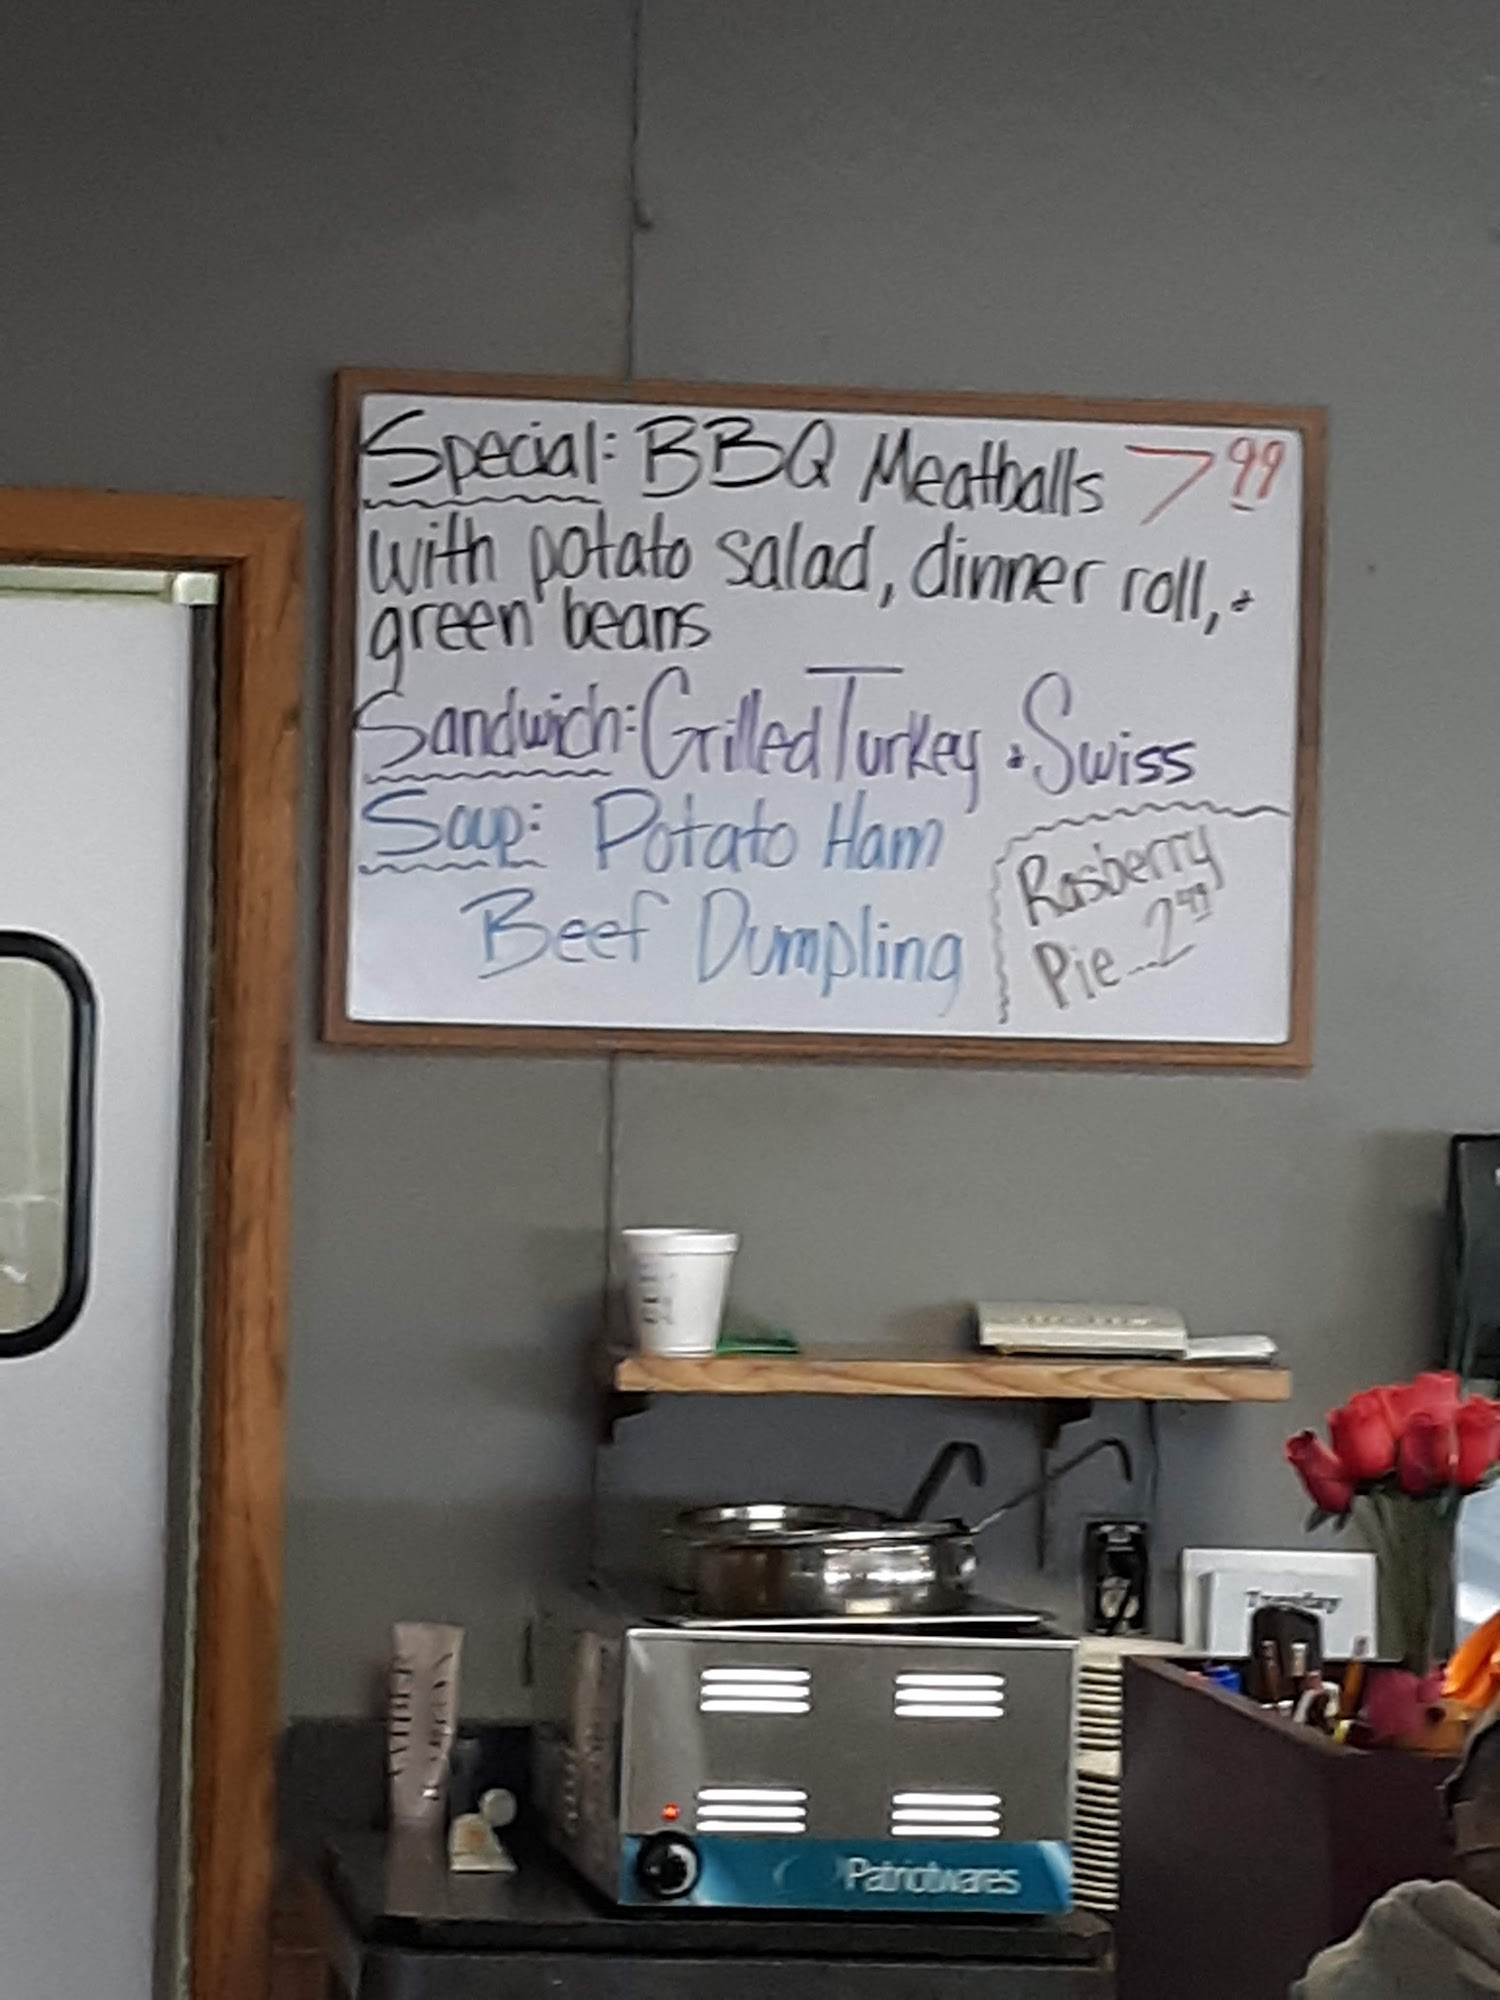 Special: BBQ Meatballs 7 99
with potato salad, dinner roll, &
green beans
Sandwich: Grilled Turkey & Swiss
Soup: Potato Ham
Beef Dumpling
Rasberry
Pie...2 49
Tuesday
Patriotwares